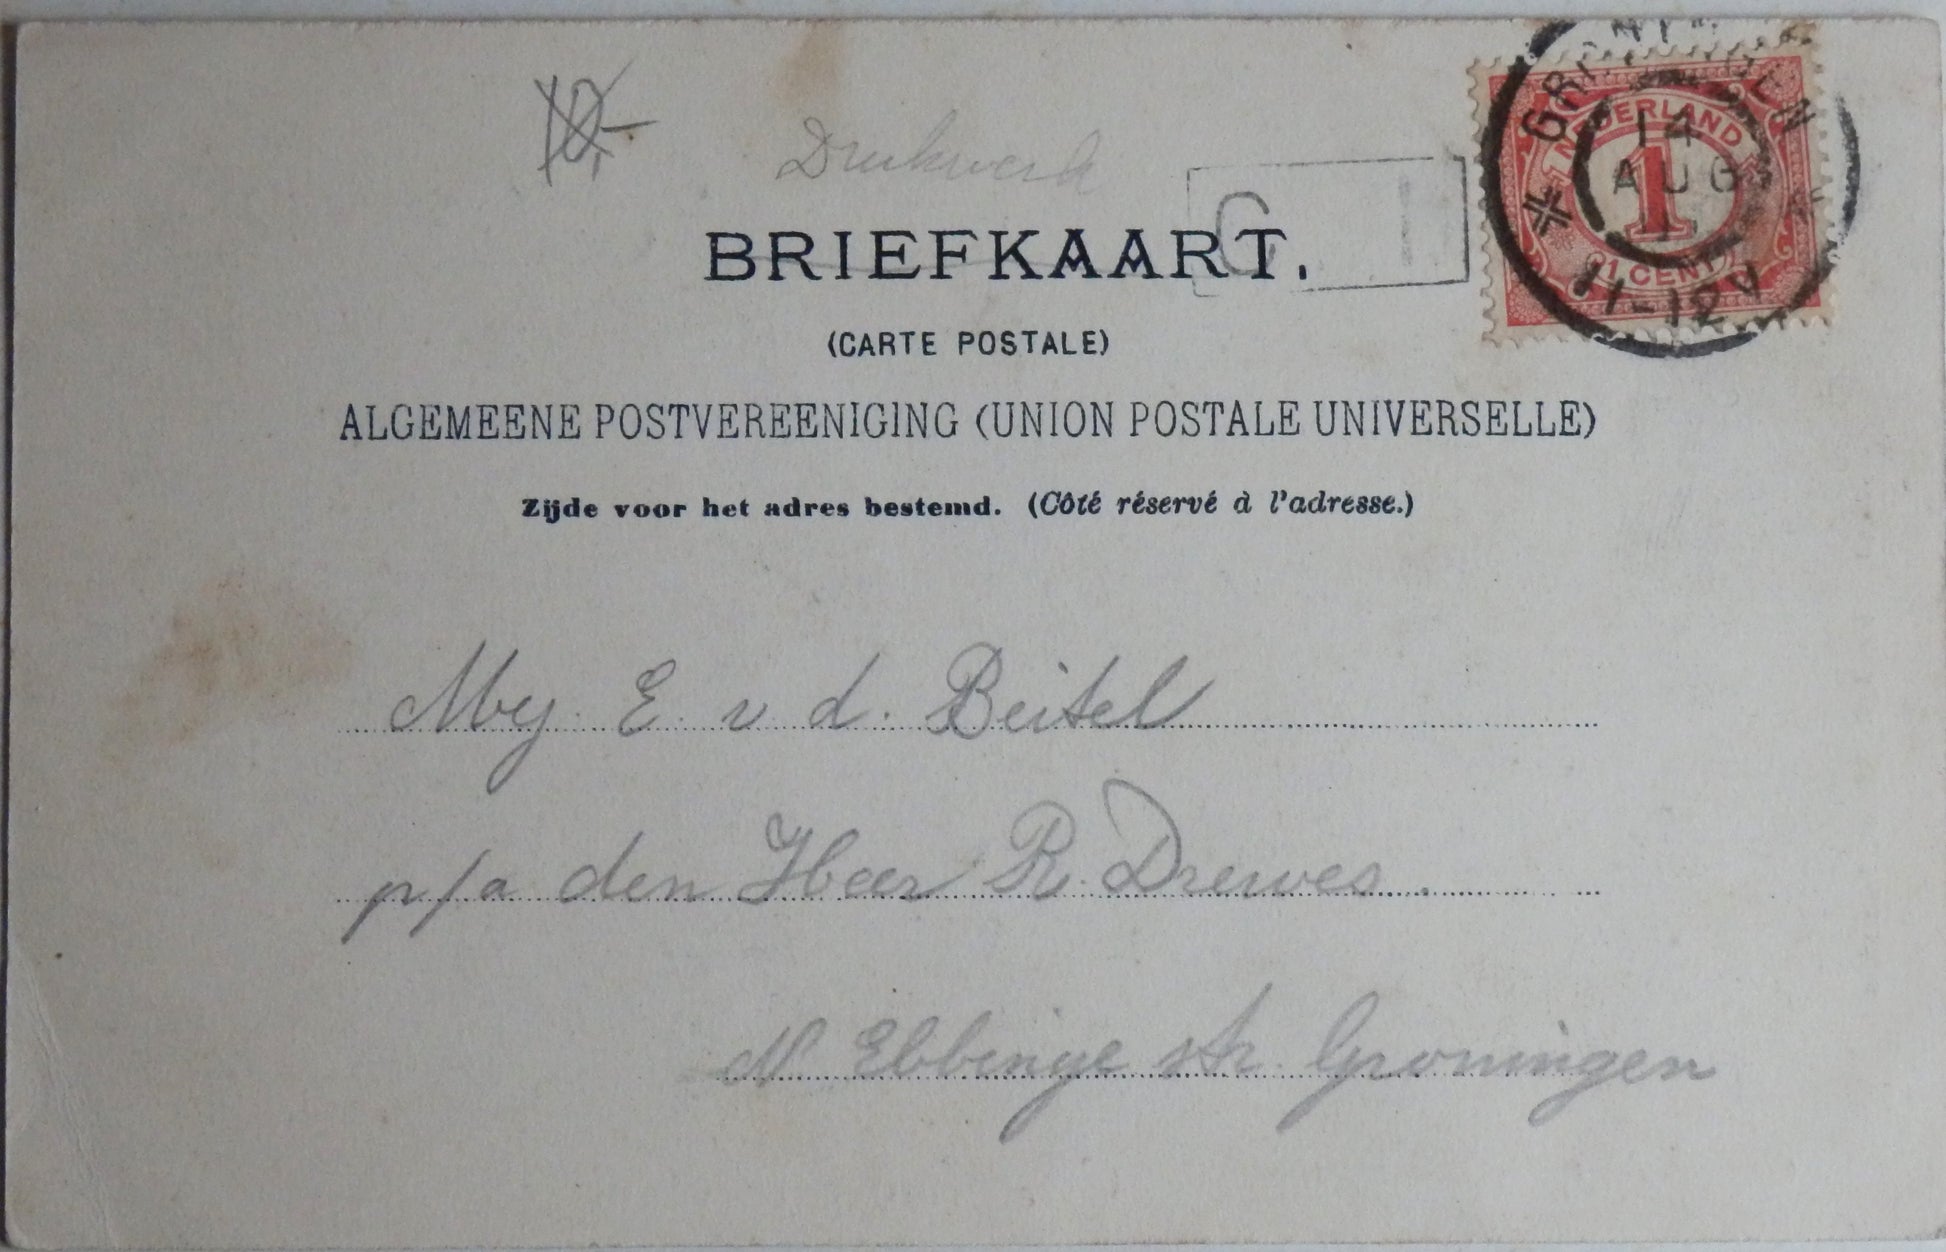 10,-
Drukwerk
GRONINGEN
14
AUG
11-12V
NEDERLAND
1
1 CENT
BRIEFKAART.
(CARTE POSTALE)
ALGEMEENE POSTVEREENIGING (UNION POSTALE UNIVERSELLE)
Zijde voor het adres bestemd. (Côté réservé à l'adresse.)
Mej. E. v d. Beitel
p/a den Heer R. Drewes.
N Ebbinge str. Groningen